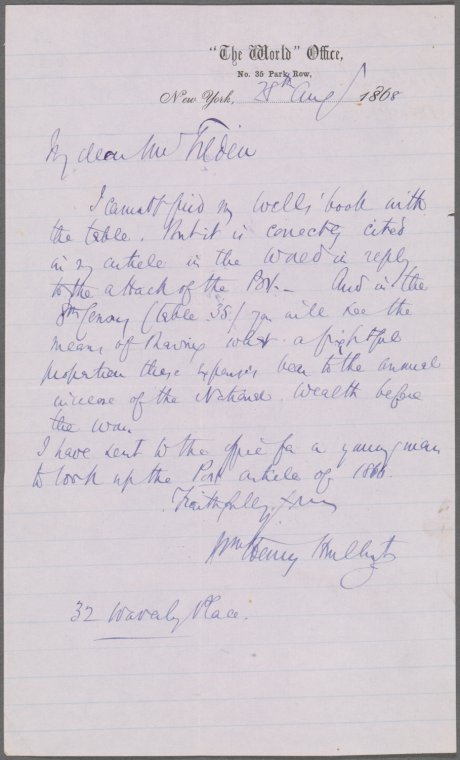 "The World" Office,
No. 35 Park Row,
New York, 28th Aug 1868
My dear Mr Tilden
I cannot find my Wells' book with
the table. But it is correctly cited
in my article in the World in reply
to the attack of the Post. – And in the
8th Census (table 35) you will see the
means of showing what a frightful
proportion these expenses bear to the annual
increase of the National wealth before
the war
I have sent to the office for a young man
to look up the Post article of 1866
Faithfully yours
Wm Henry Hurlbut
32 Waverly Place.